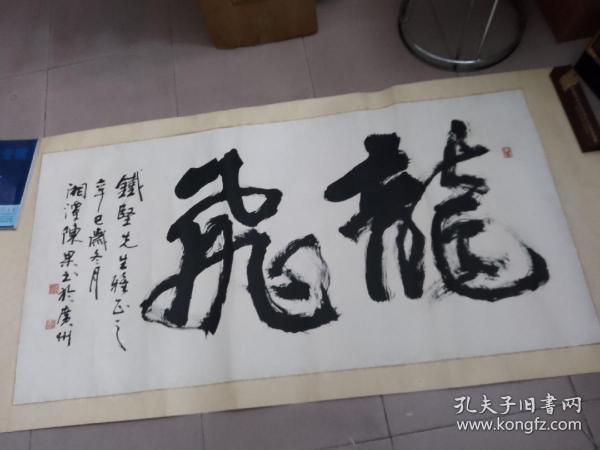 龍飛
鐵堅先生雅正之
辛巳歲冬月
湘潭陳果书於廣州
孔夫子旧書网
www.kongfz.com